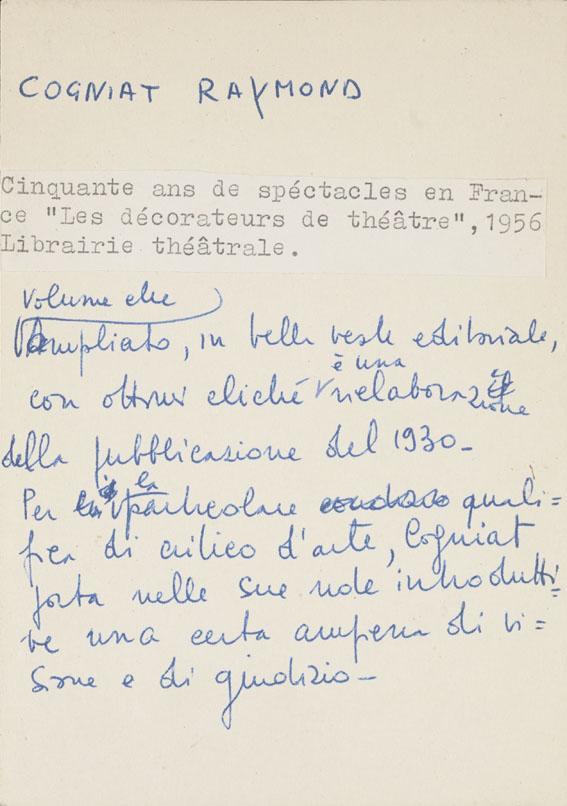 COGNIAT RAYMOND
Cinquante ans de spéctacles en Fran-
ce "Les décorateurs de théâtre", 1956
Librairie théâtrale.
Volume che
Ampliato, in bella veste editoriale,
è una
con ottimi cliché rielaborazione
della pubblicazione del 1930-
la
Per particolare quali=
fica di critico d'arte, Cogniat
porta nelle sue note introdutti=
ve una certa ampiezza di vi=
sione e di giudizio-